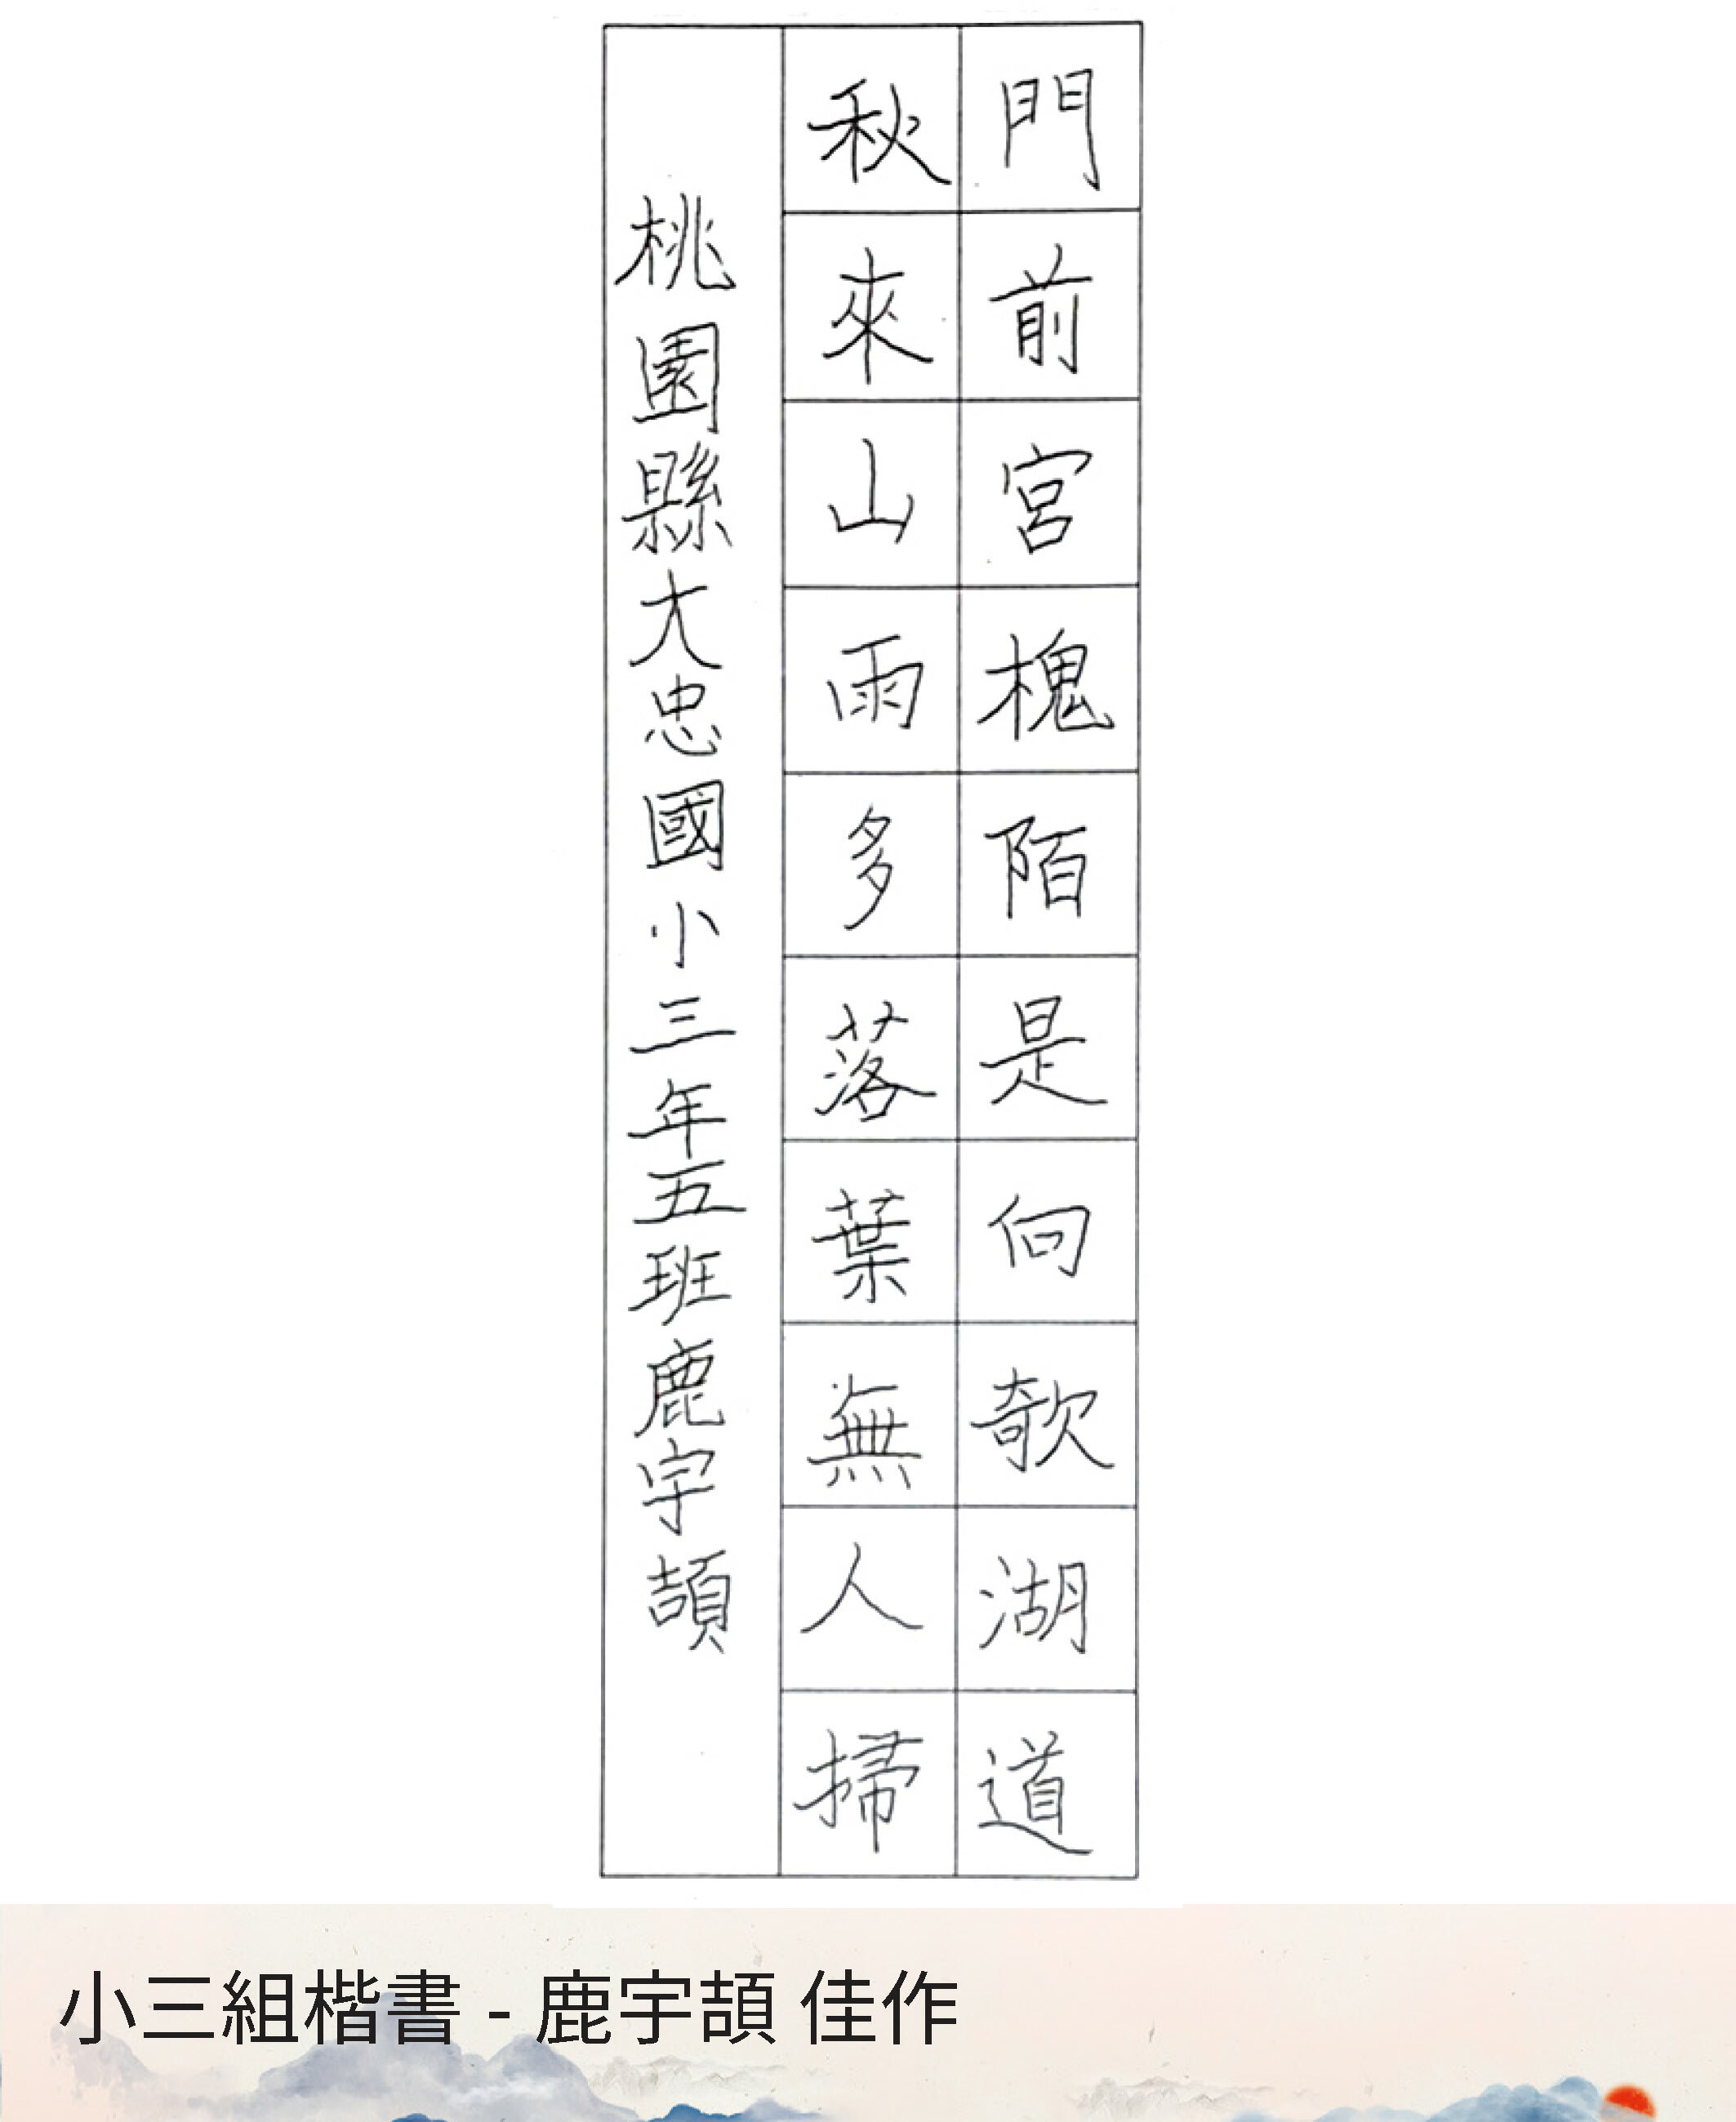 門前宮槐陌是向欹湖道
秋來山雨多落葉無人掃
桃園縣大忠國小三年五班鹿宇頡
小三組楷書 - 鹿宇頡 佳作